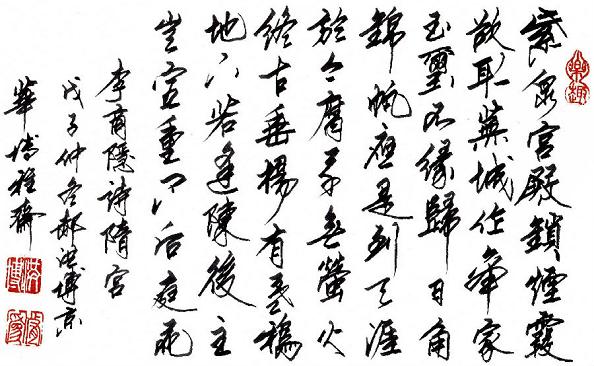 紫泉宮殿鎖煙霞
欲取蕪城作帝家
玉璽不緣歸日角
錦帆應是到天涯
於今腐草無螢火
終古垂楊有暮鴉
地下若逢陳後主
豈宜重問后庭花
李商隱詩隋宮
戊子仲冬郝洪博京
華博雅齋
樂趣